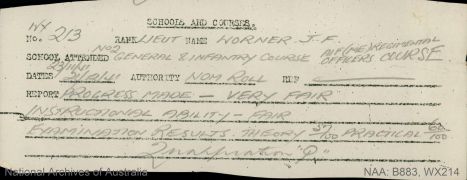 SCHOOLS AND COURSES.
WX
NO. 213 RANK LIEUT NAME HORNER J.F.
SCHOOL ATTENDED No2 GENERAL & INFANTRY COURSE AIF(ME) REGIMENTAL OFFICERS COURSE
DATES AUTHORITY NOM ROLL REF
REPORT PROGRESS MADE — VERY FAIR
INSTRUCTIONAL ABILITY — FAIR
EXAMINATION RESULTS THEORY 37/100 PRACTICAL 60/100
"Qualification
National Archives of Australia NAA: B883, WX214